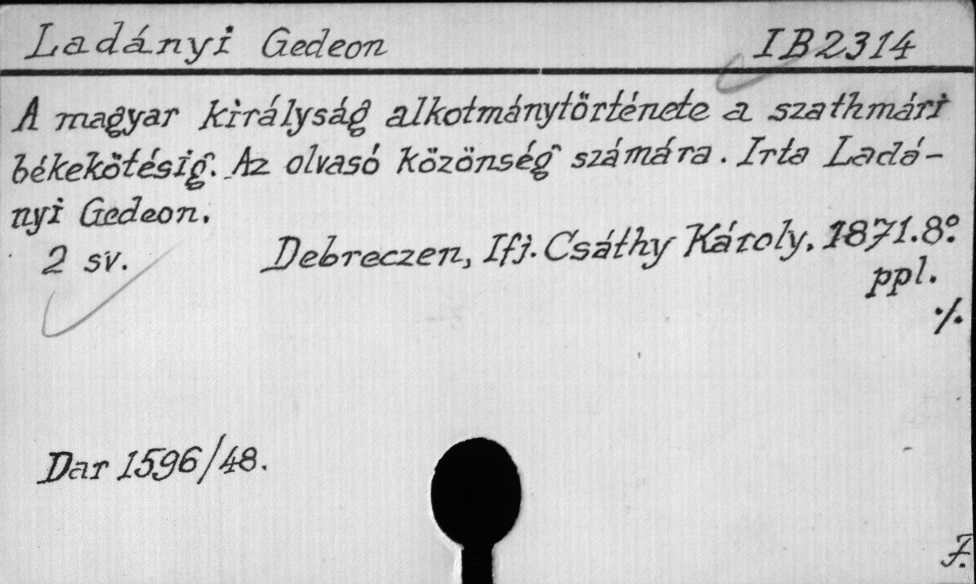 Ladányi Gedeon IB2314
A magyar királyság alkotmánytörténete a szathmári
békekötésig. Az olvasó közönség számára. Irta Ladá-
nyi Gedeon.
2 sv. Debreczen, Ifj. Csáthy Károly, 1871. 8°.
ppl.
·/.
Dar 1596/48.
F.